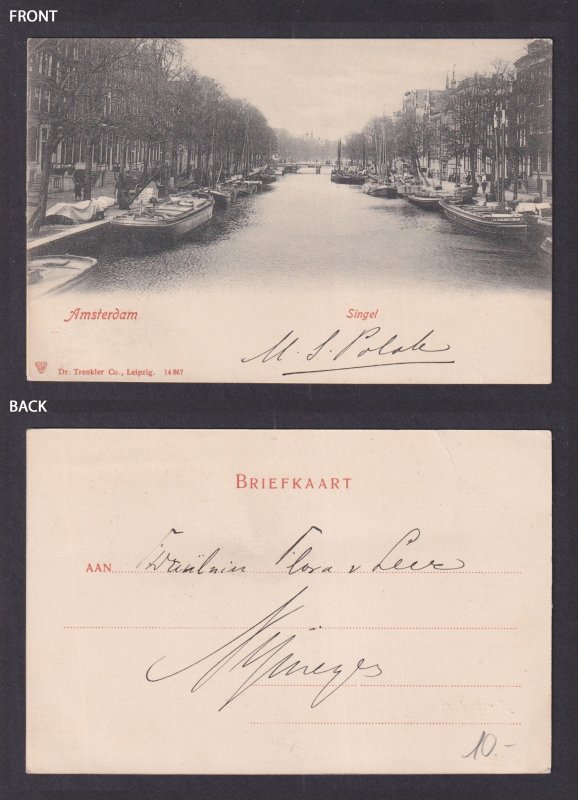 FRONT
Amsterdam
Singel
M. S. Polak
Dr. Trenkler Co., Leipzig. 14 867
BACK
BRIEFKAART
AAN Fräulein Flora v Leer
Nijmegen
10.-